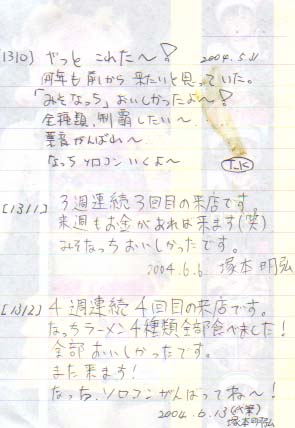 [1310] やっと これた〜!
2004.5.11
何年も前から 来たいと思っていた。
「みそなっち」おいしかったよ〜!
全種類、制覇したい〜。
がんばれ〜
なっち ソロコン いくよ〜
T.K
[1311] 3週連続3回目の来店です。
来週もお金があれば来ます(笑)
みそなっちおいしかったです。
2004.6.6 塚本明弘
[1312] 4週連続4回目の来店です。
なっちラーメン4種類全部食べました!
全部おいしかったです。
また来ます!
なっち、ソロコンがんばってね〜!
2004.6.13(代筆)
塚本明弘